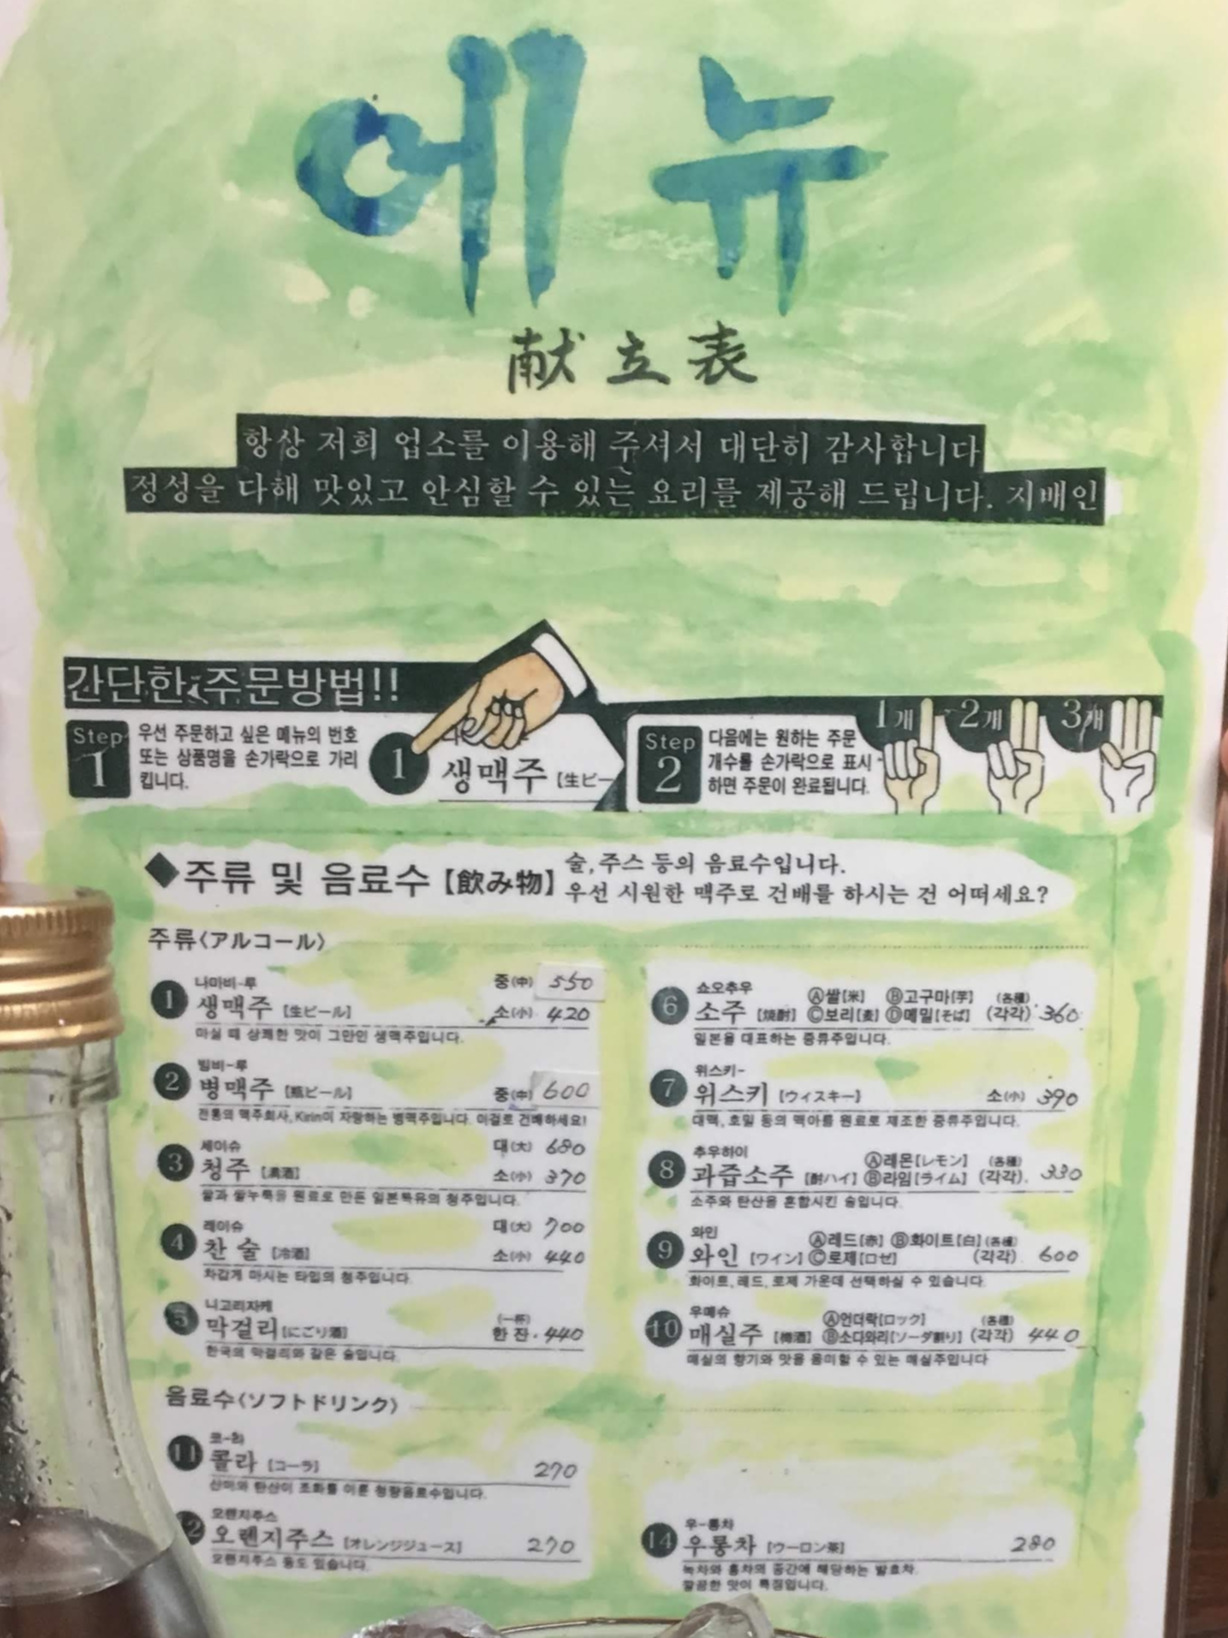 에뉴
献立表
항상 저희 업소를 이용해 주셔서 대단히 감사합니다
정성을 다해 맛있고 안심할 수 있는 요리를 제공해 드립니다. 지배인
간단한 주문방법!!
Step 1
우선 주문하고 싶은 메뉴의 번호
또는 상품명을 손가락으로 가리
킵니다.
1 생맥주 [生ビー
Step 2
다음에는 원하는 주문
개수를 손가락으로 표시
하면 주문이 완료됩니다.
1개 2개 3개
◆주류 및 음료수【飲み物】
술,주스 등의 음료수입니다.
우선 시원한 맥주로 건배를 하시는 건 어떠세요?
주류〈アルコール〉
나마비-루 중(中) 550
1 생맥주 [生ビール] 소(小) 420
마실 때 상쾌한 맛이 그만인 생맥주입니다.
빙비-루
2 병맥주 [瓶ビール] 중(中) 600
전통의 맥주회사, Kirin이 자랑하는 병맥주입니다. 이걸로 건배하세요!
세이슈 대(大) 680
3 청주 [清酒] 소(小) 370
쌀과 쌀누룩을 원료로 만든 일본특유의 청주입니다.
레이슈 대(大) 700
4 찬 술 [冷酒] 소(小) 440
차갑게 마시는 타입의 청주입니다.
니고리자케 (一杯)
5 막걸리 [にごり酒] 한 잔. 440
한국의 막걸리와 같은 술입니다.
쇼오추우 Ⓐ쌀[米] Ⓑ고구마[芋] (各種)
6 소주 [焼酎] Ⓒ보리[麦] Ⓓ메밀[そば] (각각) 360
일본을 대표하는 증류주입니다.
위스키-
7 위스키 [ウィスキー] 소(小) 390
대맥, 호밀 등의 맥아를 원료로 제조한 증류주입니다.
추우하이 Ⓐ레몬[レモン] (各種)
8 과즙소주 [酎ハイ] Ⓑ라임[ライム] (각각). 330
소주와 탄산을 혼합시킨 술입니다.
와인 Ⓐ레드[赤] Ⓑ화이트[白] (各種)
9 와인 [ワイン] Ⓒ로제[ロゼ] (각각) 600
화이트, 레드, 로제 가운데 선택하실 수 있습니다.
우메슈 Ⓐ언더락[ロック] (各種)
10 매실주 [梅酒] Ⓑ소다와리[ソーダ割り] (각각) 440
매실의 향기와 맛을 음미할 수 있는 매실주입니다
음료수〈ソフトドリンク〉
코-라
11 콜라 [コーラ] 270
산미와 탄산이 조화를 이룬 청량음료수입니다.
오렌지주스
2 오렌지주스 [オレンジジュース] 270
오렌지주스 등도 있습니다.
우-롱차
14 우롱차 [ウーロン茶] 280
녹차와 홍차의 중간에 해당하는 발효차.
깔끔한 맛이 특징입니다.